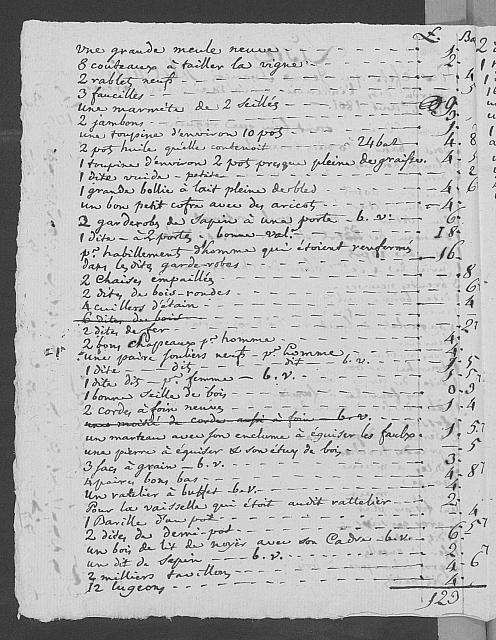 £ Ba
une grande meule neuve 1
8 couteaux à tailler la vigne 2
2 rablets neufs 4
3 faucilles 5
une marmite de 2 seillés 9
2 jambons 3
une toupine d'environ 10 pots 1
2 pots huile qu'elle contenoit 24 ba 2 4 8
1 toupine d'environ 2 pots presque pleine de graisse 4 5
1 dite vuide petite 2
1 grande bollie à lait pleine de bled 4 6
un bon petit cofre avec des aricots 4
2 garderobes de sapin à une porte b. v. 6
1 dite à 2 portes bonne val. 18
pr. habillements d'homme qui étoient renfermés
dans les dites garde-robes 16
2 chaises empaillés 8
2 dites de bois rondes 6
4 cuillers d'étain 4
6 dites de bois
2 dites de fer 2
2 bons chapeaux pr. homme 4
une paire souliers neufs pr. homme 4
1 dite dit dit b. v. 1 5
1 dite dit pr. femme b. v. 1 5
1 bonne seille de bois 9
2 cordes à foin neuves 1 4
une moitié de corde aussi à foin b. v.
un marteau avec son enclume à éguiser les faulx 1 5
une pierre à éguiser & son étuy de bois 5
3 sacs à grain b. v. 3
4 paires bons bas 4 8
Un ratelier à buffet b. v. 4
Pour la vaisselle qui étoit audit rattelier 2
1 Barille d'un pot 4
2 dites de demi-pot 5
un bois de lit de noyer avec son Cadre b. v. 6
un dit de sapin b. v. 2
2 milliers tavillons 4 6
12 lugeons 4
129